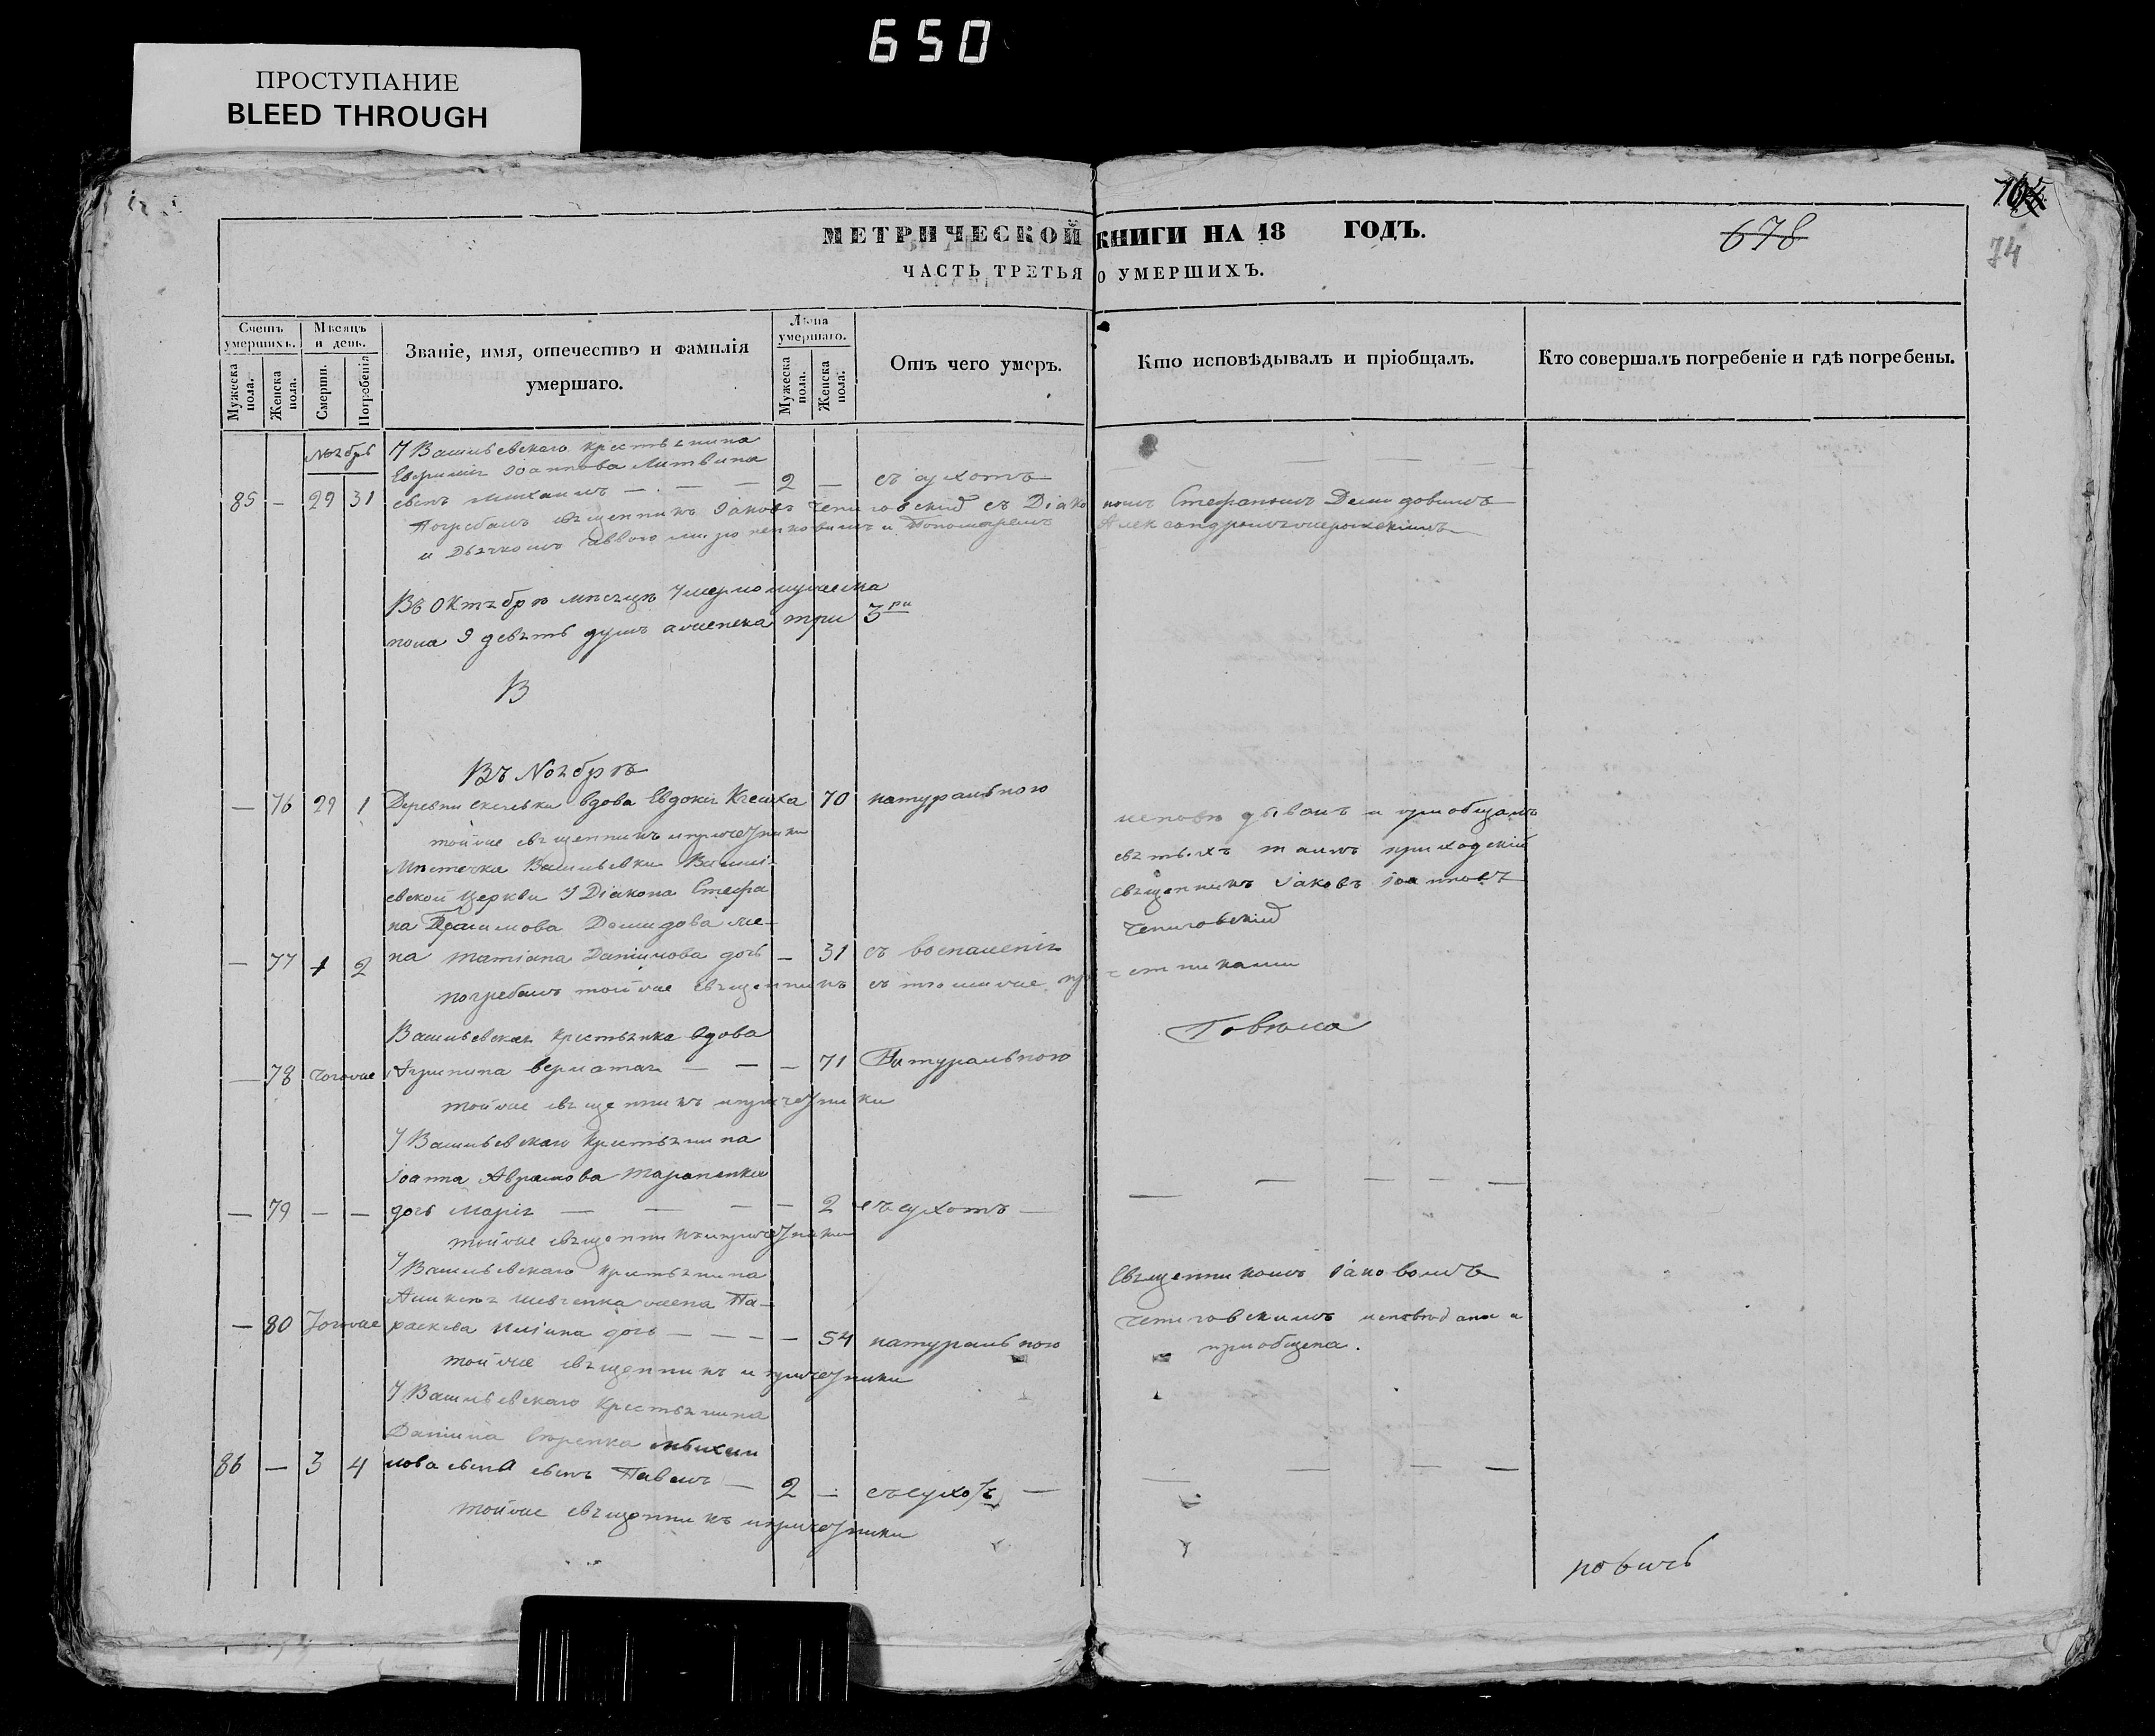 650
ПРОСТУПАНИЕ
BLEED THROUGH
678
74
МЕТРИЧЕСКОЙ КНИГИ НА 18 ГОДЪ.
ЧАСТЬ ТРЕТЬЯ О УМЕРШИХЪ.
Счетъ умершихъ.
Мѣсяцъ и день.
Званіе, имя, отечество и фамилія умершаго.
Лѣта умершаго.
Отъ чего умеръ.
Кто исповѣдывалъ и пріобщалъ.
Кто совершалъ погребеніе и гдѣ погребены.
Мужеска пола.
Женска пола.
Смерти.
Погребенія
Мужеска пола.
Женска пола.
Ноябрь У Васильевскаго крестьянина
Іоаннова Литвина
85 — 29 31 сынъ Михаилъ — — — 2 — съ сухотъ
Погребалъ священникъ Іаковъ съ Діакономъ Стефаномъ Демидовимъ
и Дьячкомъ и Пономаремъ
Въ Октябрѣ мѣсяцѣ умерло мужеска
пола 9 девять душъ а женска три 3ри
В
Въ Ноябрѣ
— 76 29 1 Деревни вдова Евдокія 70 натуральною
тойже священникъ и причетники
исповѣдывалъ и приобщалъ
святыхъ таинъ приходскій
священникъ Іаковъ Іоанновъ
Мѣстечка Васильевки
евской Церкви У Діакона Стефа
на Демидова же-
— 77 1 2 на Татіана Даніилова дочь — 31 съ воспаленія
погребалъ тойже священникъ съ тѣмиже причетниками
Васильевская крестьянка вдова
— 78 тогоже Агрипина — — — 71 Натуральною
тойже священникъ и причетники
У Васильевскаго крестьянина
Іоанна Аврамова Тараненка
— 79 — — дочь Марія — — — — 2 съ сухотъ —
тойже священникъ и причетники
У Васильевскаго крестьянина
Шевченка жена Па-
— 80 тогоже раскева дочь — — — — 54 натуральною
Священникомъ Іаковомъ
исповѣдана и
приобщена.
тойже священникъ и причетники
У Васильевскаго крестьянина
Даніила
86 — 3 4 лова сына сынъ Павелъ — 2 — съ сухотъ —
тойже священникъ и причетники